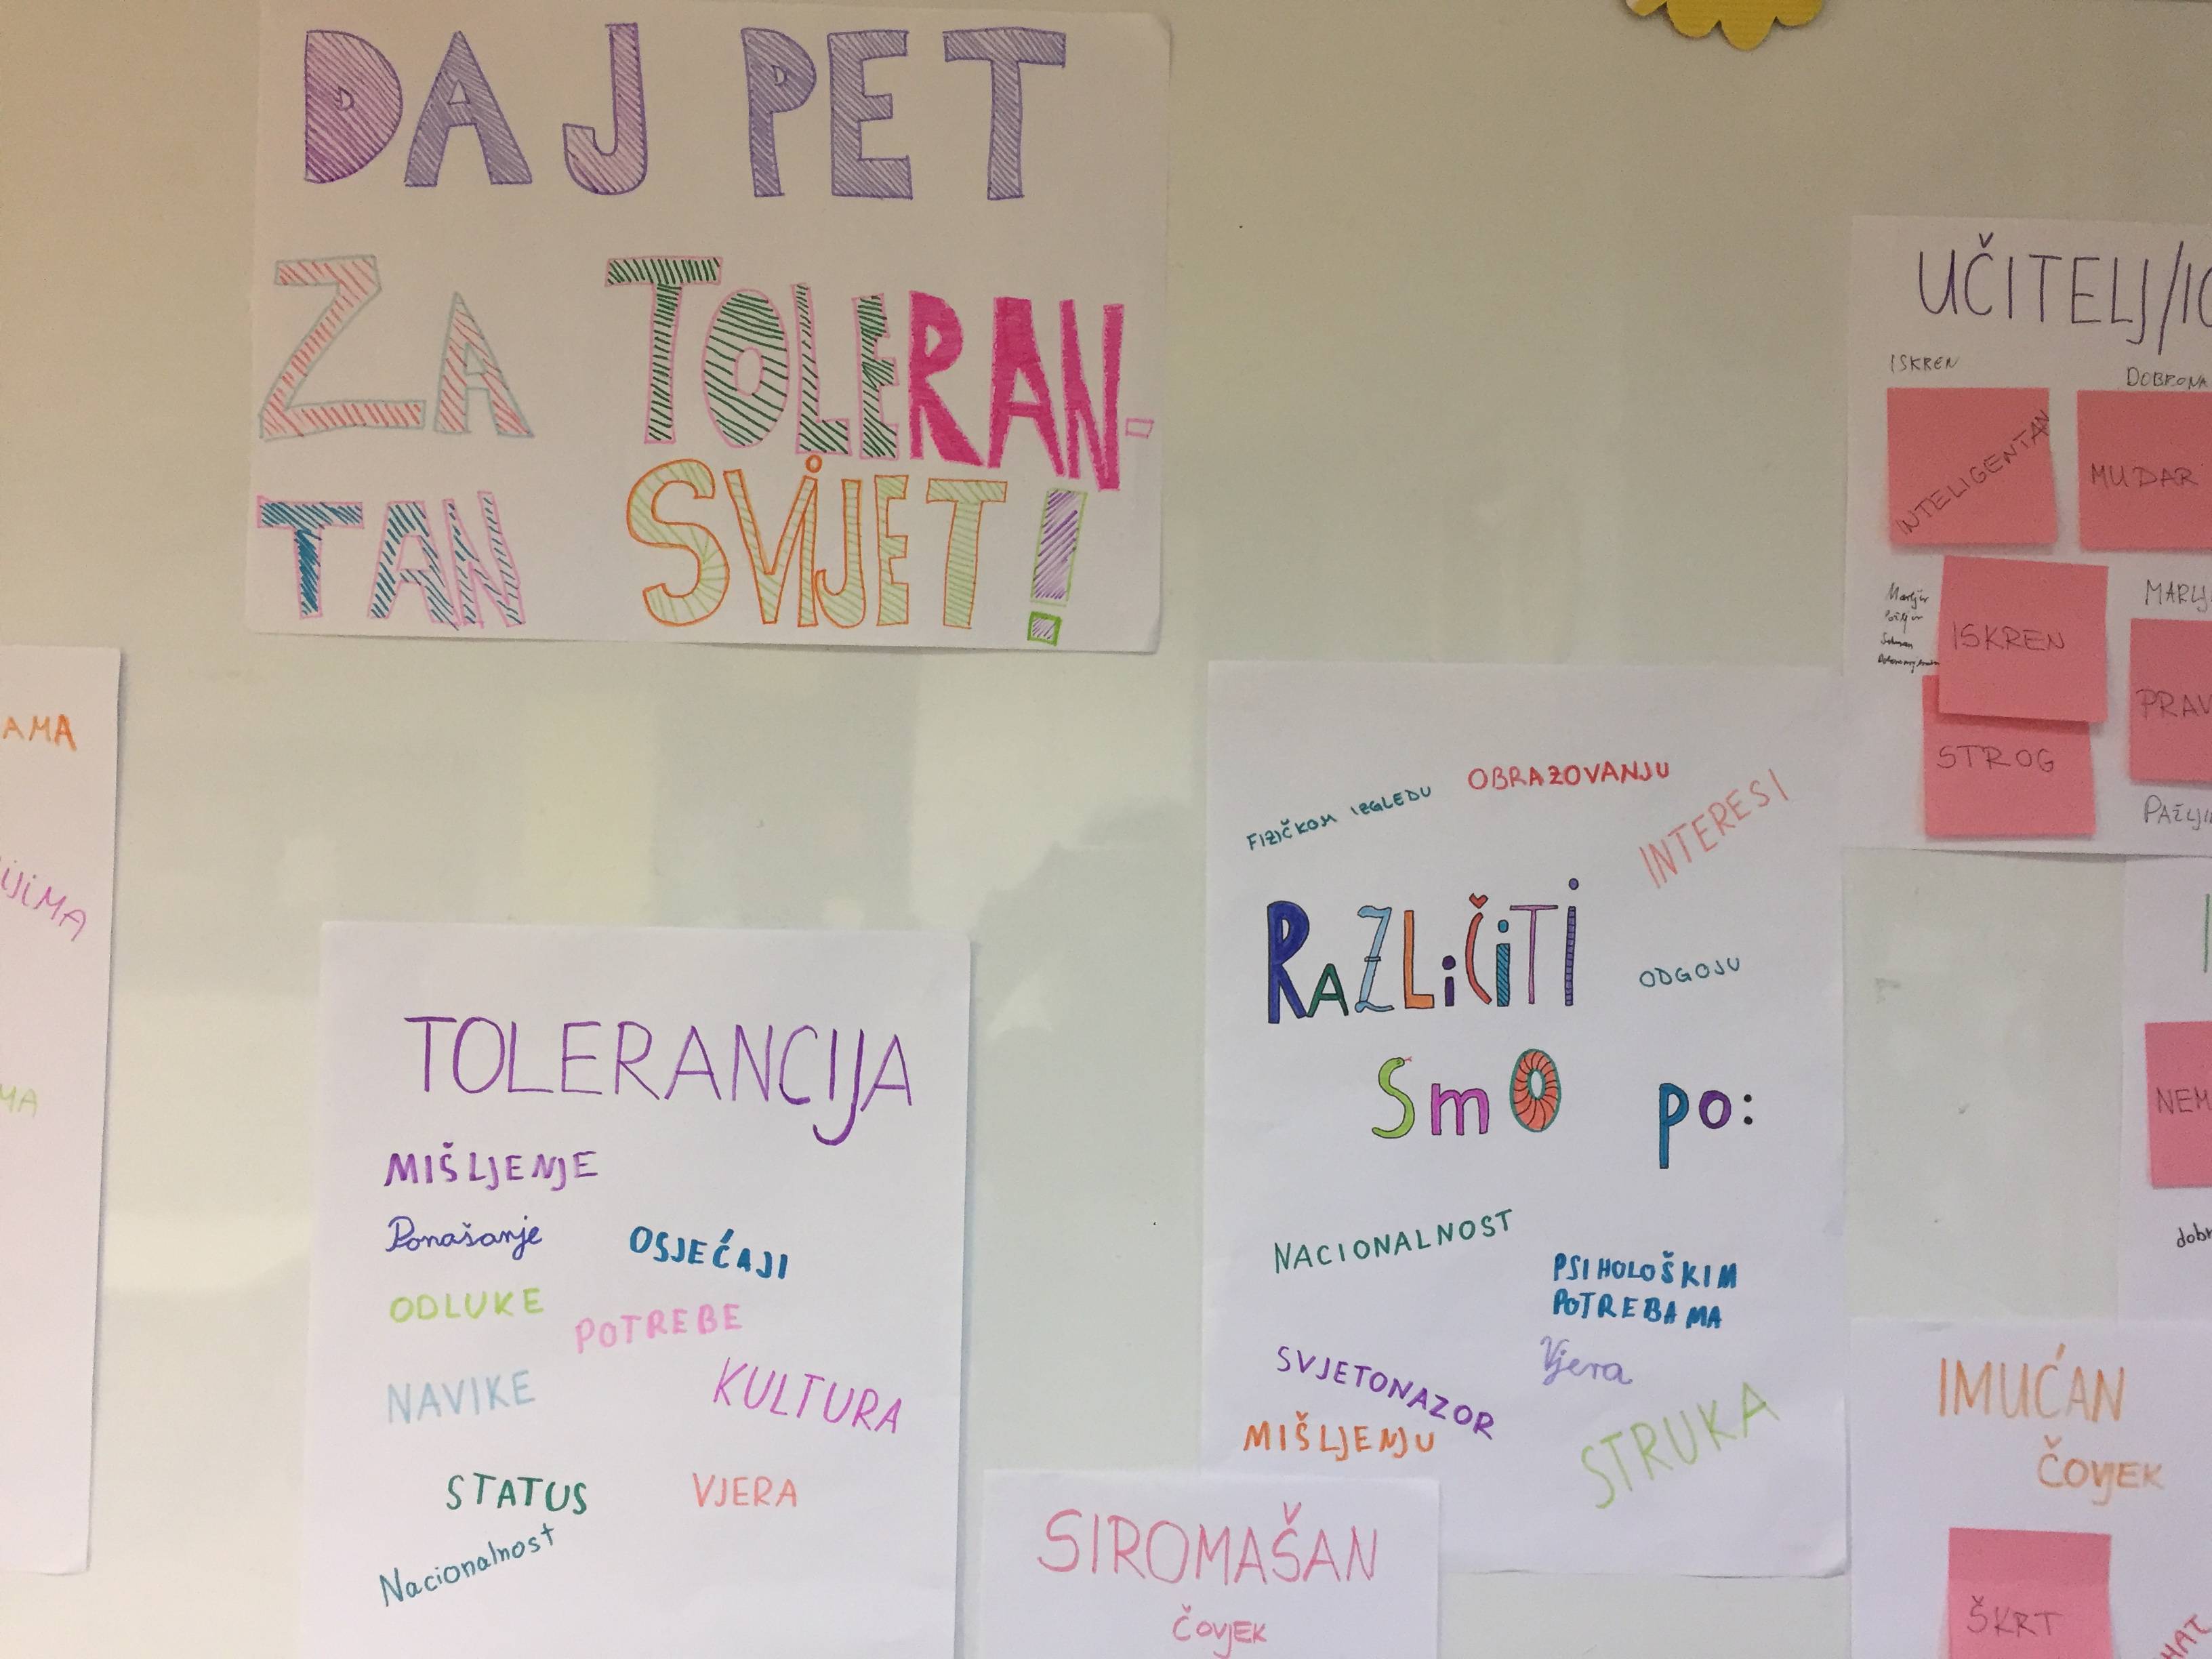 DAJ PET
ZA TOLERAN-
TAN SVIJET!
UČITELJ/IC
ISKREN
DOBRONA
INTELIGENTAN
MUDAR
Marljiv
MARLJ
ISKREN
PRAV
STROG
PAŽLJI
AMA
IJIMA
MA
TOLERANCIJA
MIŠLJENJE
Ponašanje
OSJEĆAJI
ODLUKE
POTREBE
NAVIKE
KULTURA
STATUS
VJERA
Nacionalnost
FIZIČKOM IZGLEDU
OBRAZOVANJU
INTERESI
RAZLIČITI
ODGOJU
SmO po:
NACIONALNOST
PSIHOLOŠKIM
POTREBAMA
SVJETONAZOR
Vjera
MIŠLJENJU
STRUKA
SIROMAŠAN
ČOVJEK
NEM
dobr
IMUĆAN
ČOVJEK
ŠKRT
HAT